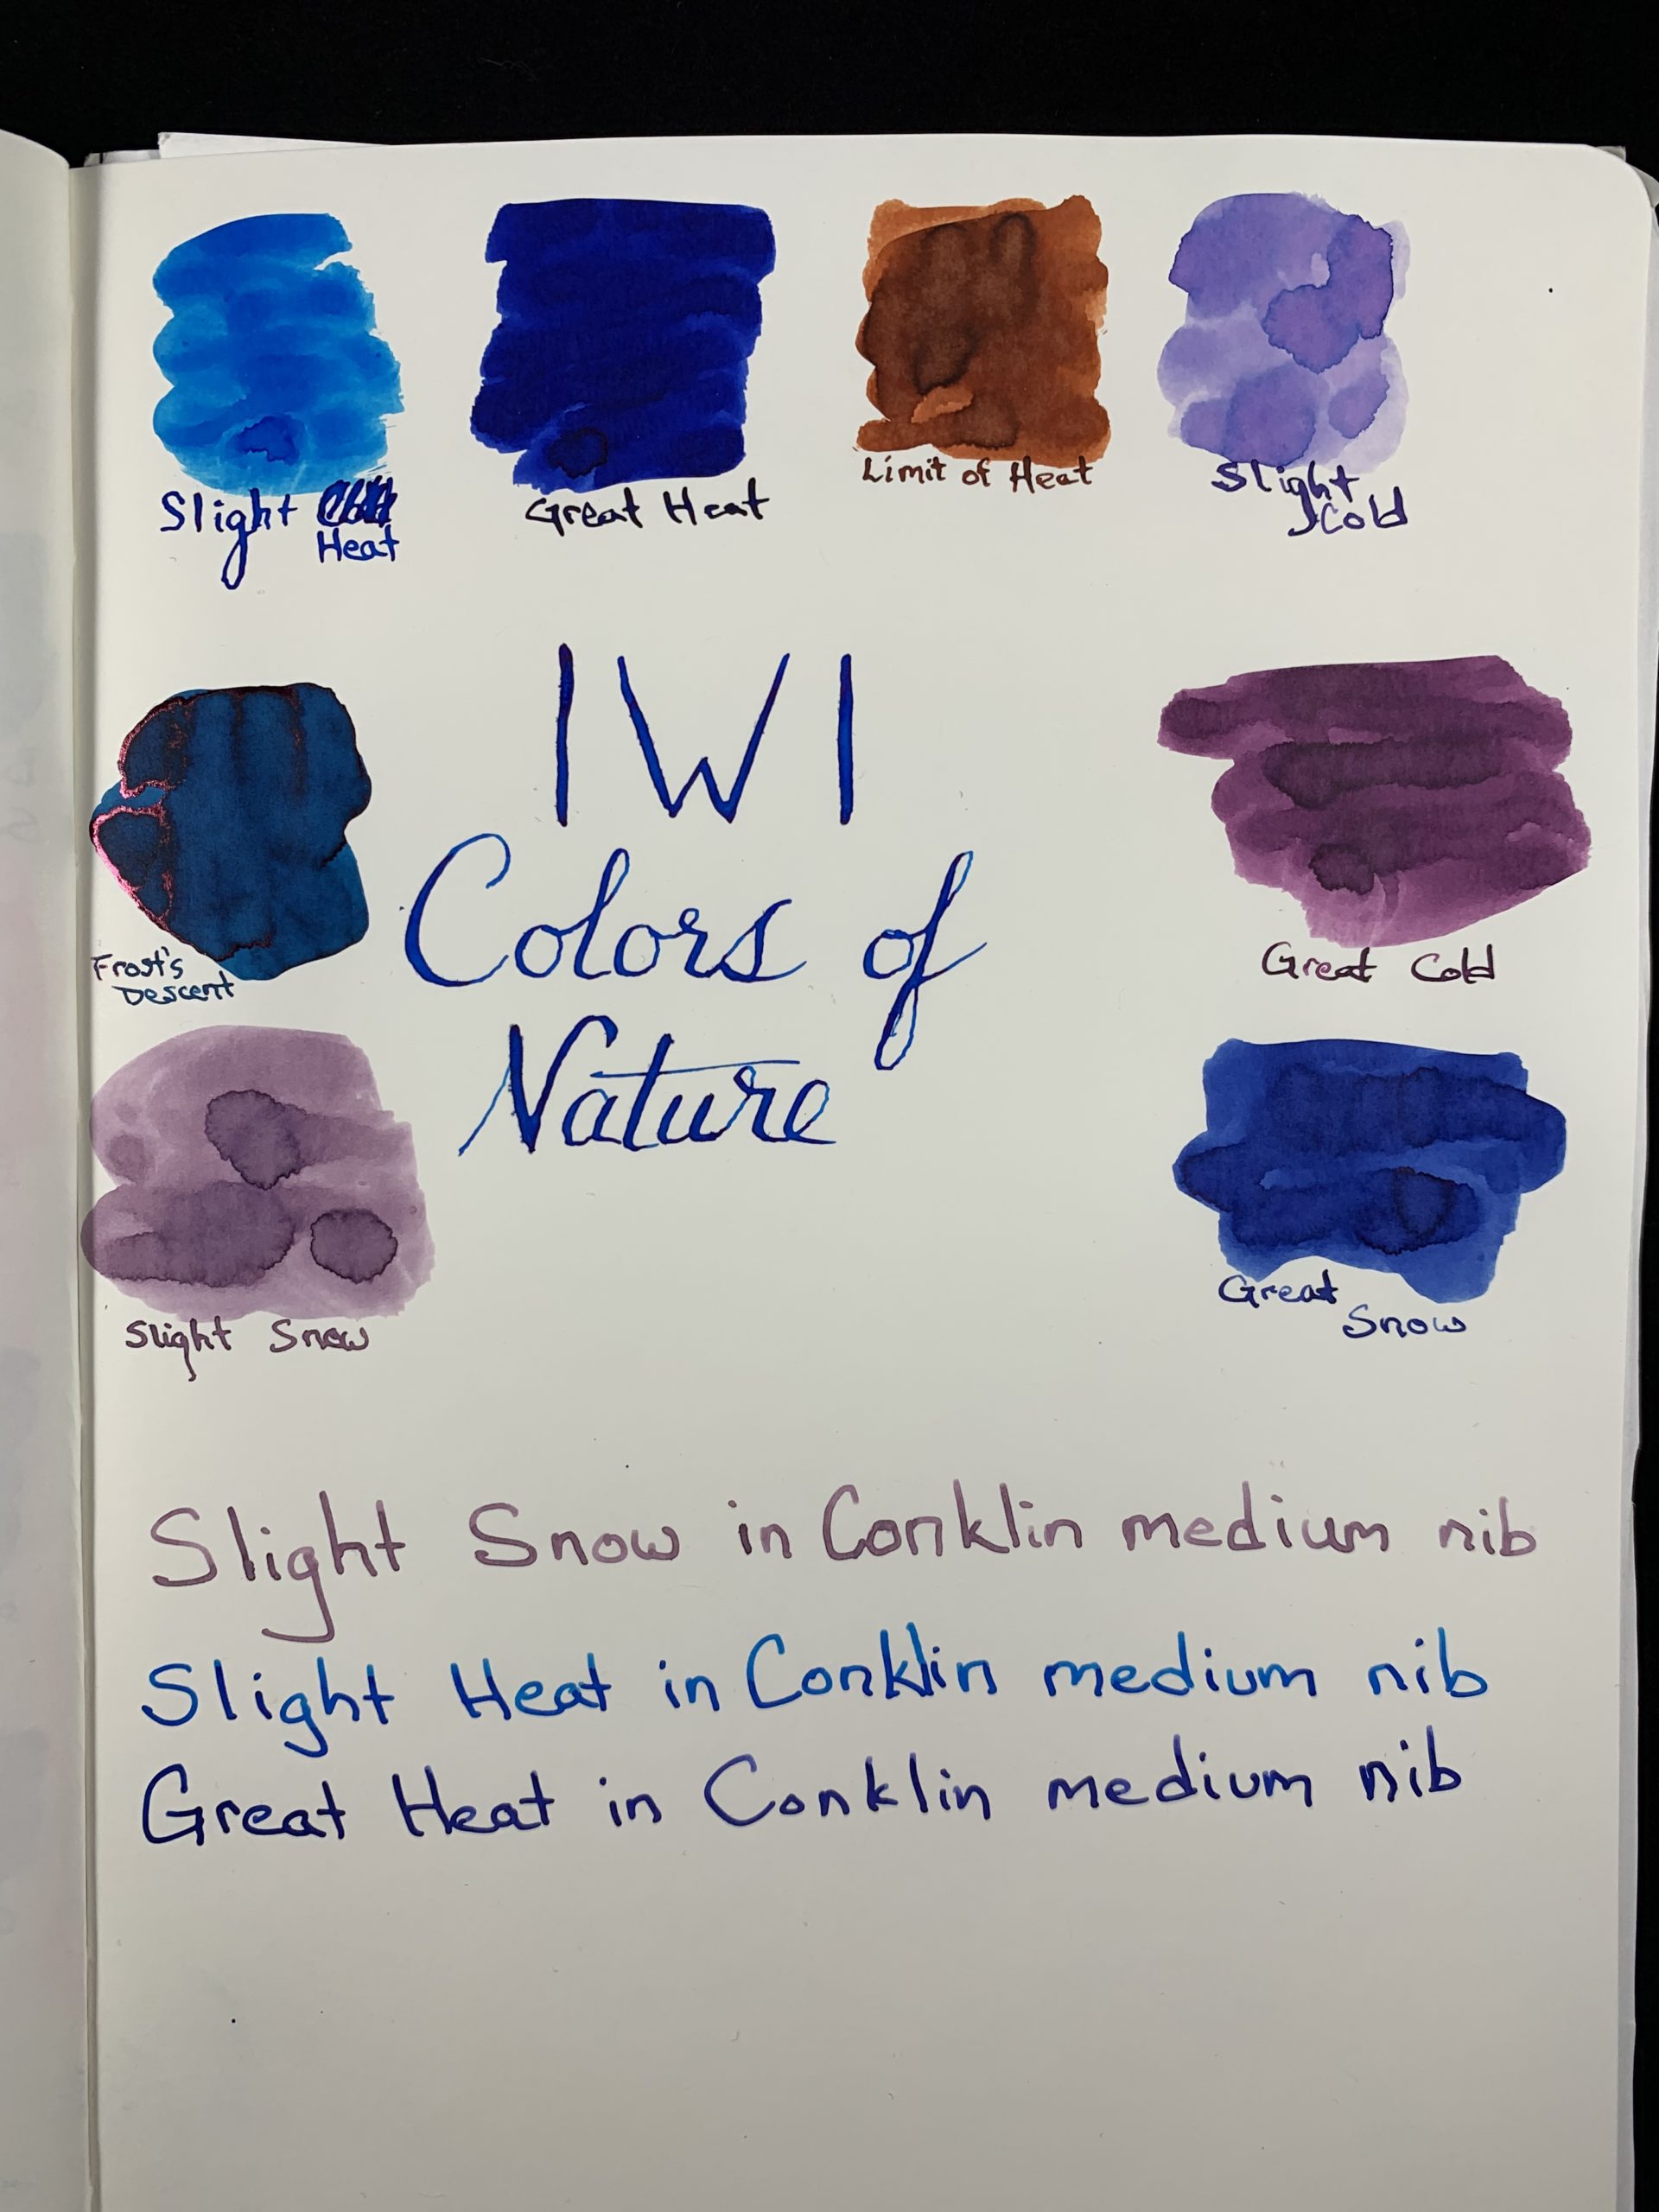 Slight
Heat
Great Heat
Limit of Heat
Slight
Cold
IWI
Colors of
Nature
Frost's
Descent
Great Cold
Slight Snow
Great
Snow
Slight Snow in Conklin medium nib
Slight Heat in Conklin medium nib
Great Heat in Conklin medium nib